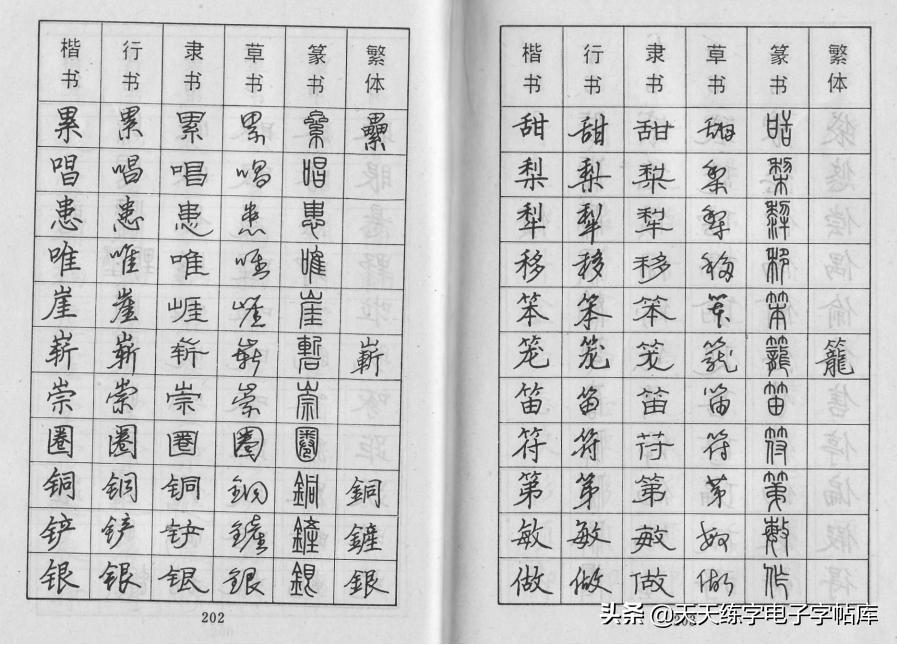 楷书 行书 隶书 草书 篆书 繁体
累 累 累 累 累 纍
唱 唱 唱 唱 唱
患 患 患 患 患
唯 唯 唯 唯 唯
崖 崖 崖 崖 崖
崭 崭 崭 崭 嶄 嶄
崇 崇 崇 崇 崇
圈 圈 圈 圈 圈
铜 铜 铜 铜 銅 銅
铲 铲 铲 鏟 鏟 鏟
银 银 银 银 銀 銀
202
楷书 行书 隶书 草书 篆书 繁体
甜 甜 甜 甜 甜
梨 梨 梨 梨 梨
犁 犁 犁 犁 犁
移 移 移 移 移
笨 笨 笨 笨 笨
笼 笼 笼 籠 籠 籠
笛 笛 笛 笛 笛
符 符 符 符 符
第 第 第 第 第
敏 敏 敏 敏 敏
做 做 做 做 作
头条 @天天练字电子字帖库